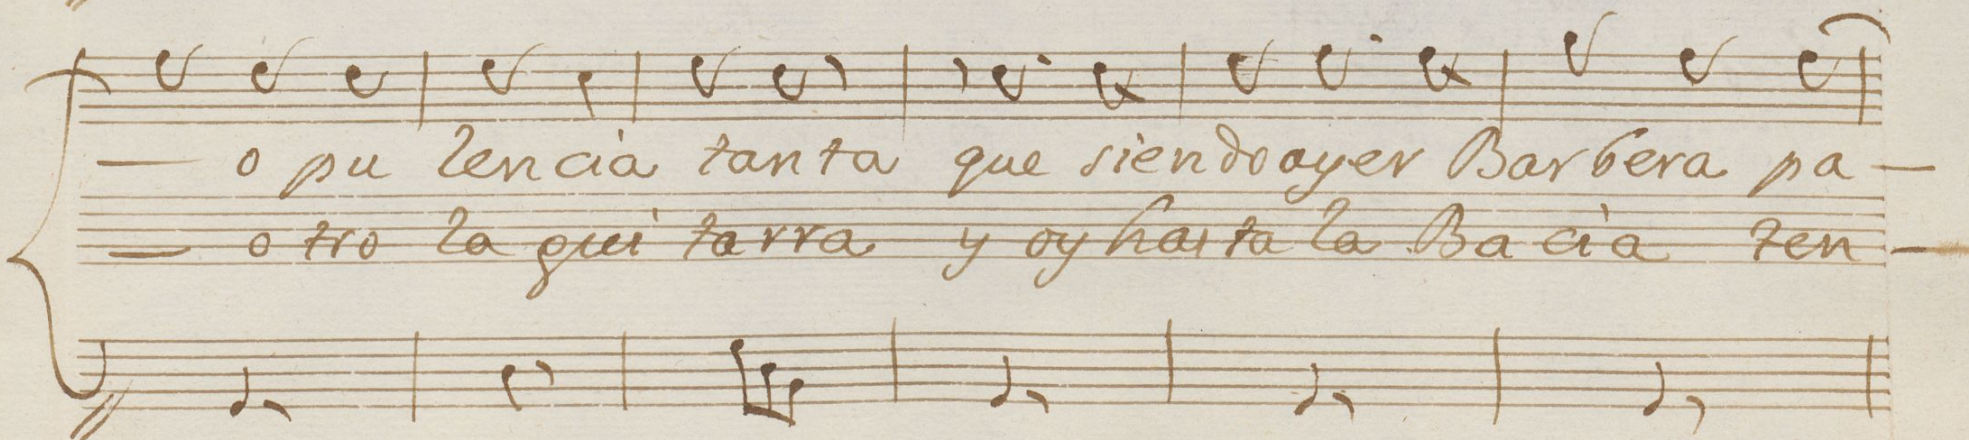 — o pu lencia tanta que siendo ayer Barbera pa —
— o tro la gui tarra y oy hasta la Bacia ten —